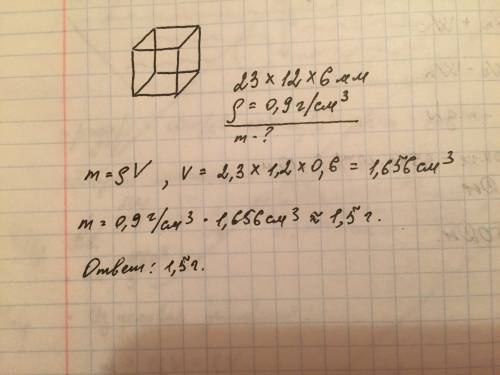 23 × 12 × 6 мм
ρ = 0,9 г/см³
m - ?
m = ρV , V = 2,3 × 1,2 × 0,6 = 1,656 см³
m = 0,9 г/см³ · 1,656 см³ ≈ 1,5 г.
Ответ: 1,5 г.